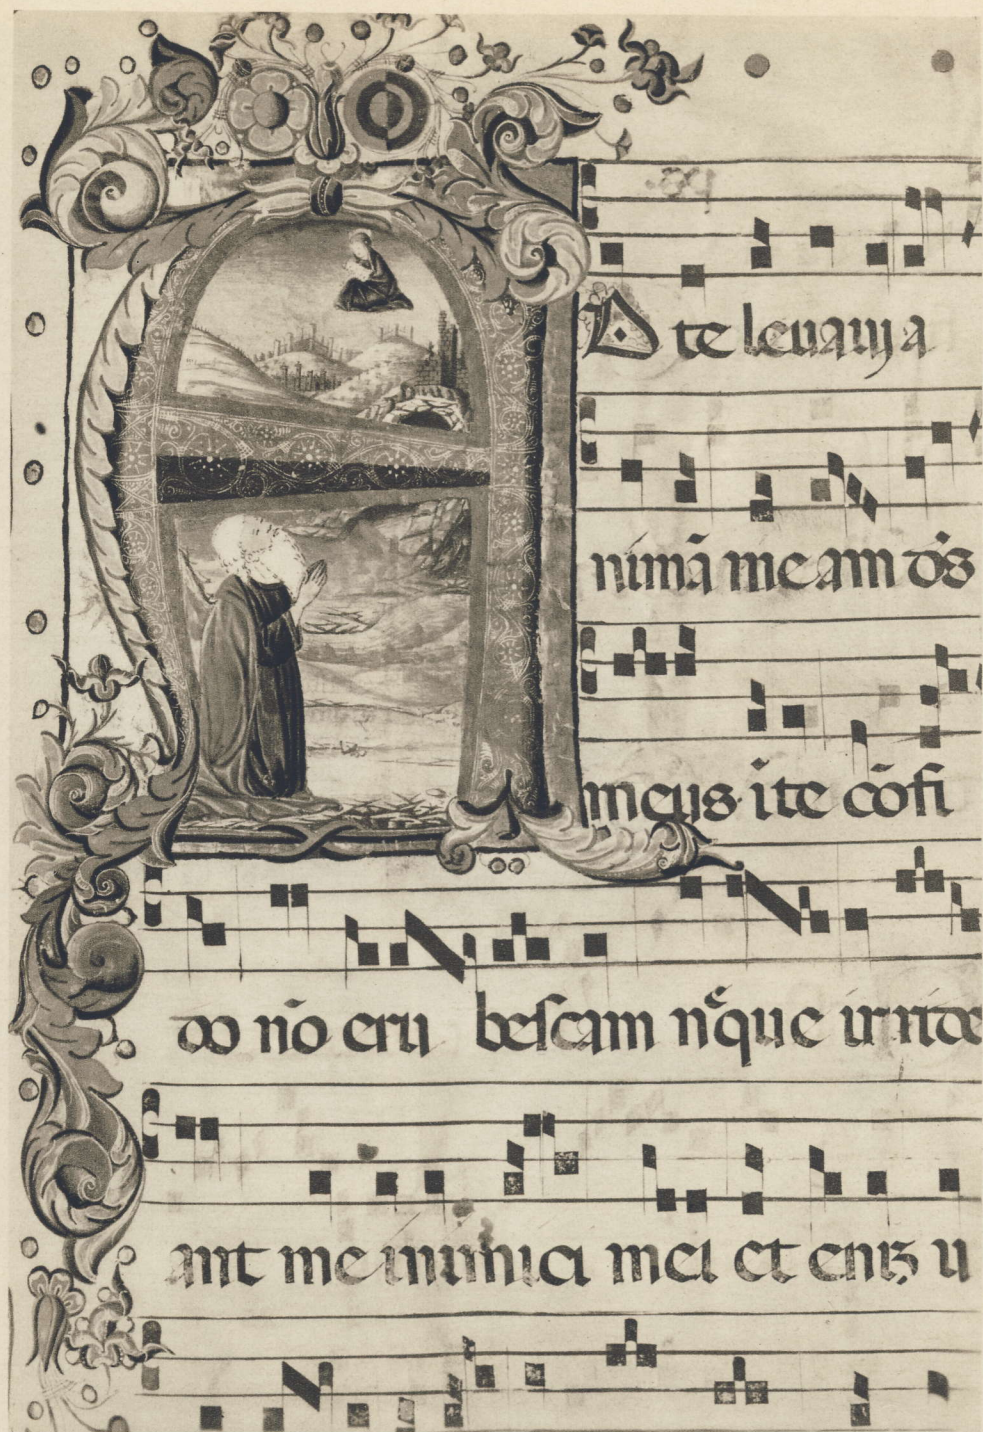 D te leuaui a
nimā meam dš
meus ite cōfi
do nō eru bescam nque irride
ant me inimici mei et eniʒ u